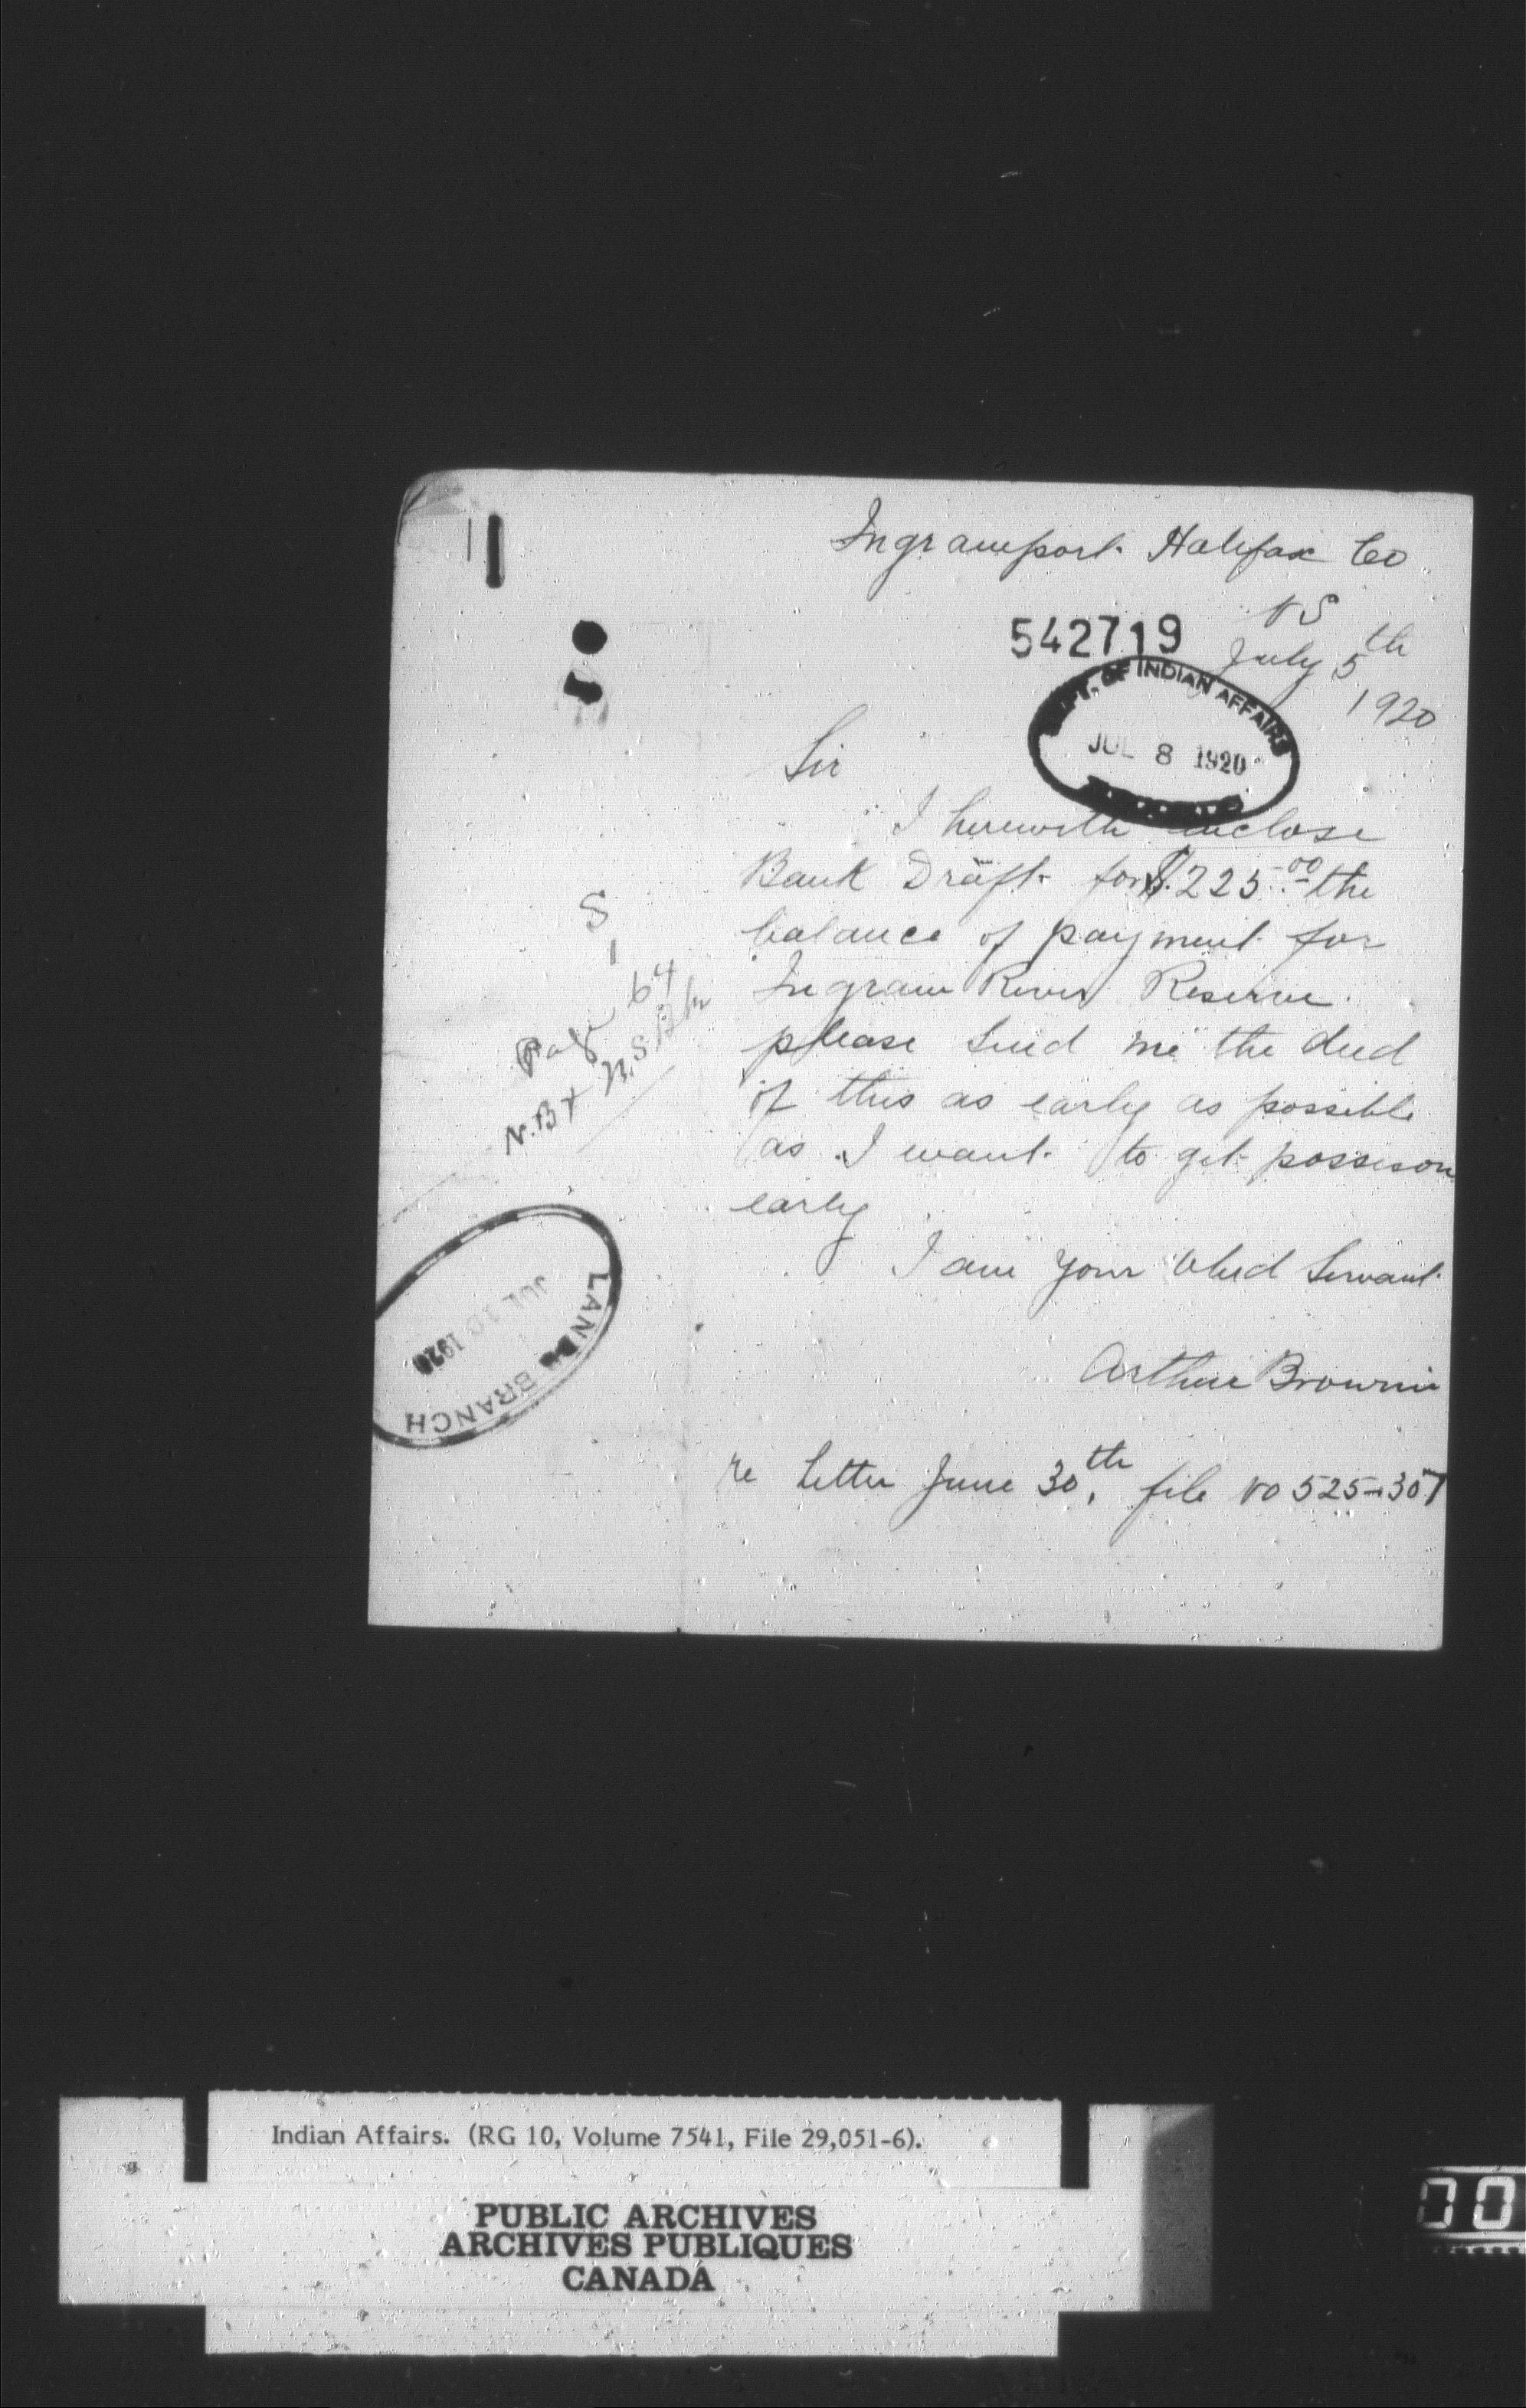 Ingramport Halifax Co
NS
542719
July 5th
1920
DEPT. OF INDIAN AFFAIRS
JUL 8 1920
Sir
I herewith enclose
Bank Draft for $225.00 the
balance of payment for
Ingram River Reserve.
please send me the deed
of this as early as possible
as I want to get possison
early
I am your Obed Servant
Arthur Brown
re Letter June 30th, file No 525-307
S
1
Page 64
N.B & N.S. Bk
LANDS BRANCH
JUL 10 1920
Indian Affairs. (RG 10, Volume 7541, File 29,051-6).
PUBLIC ARCHIVES
ARCHIVES PUBLIQUES
CANADA
00